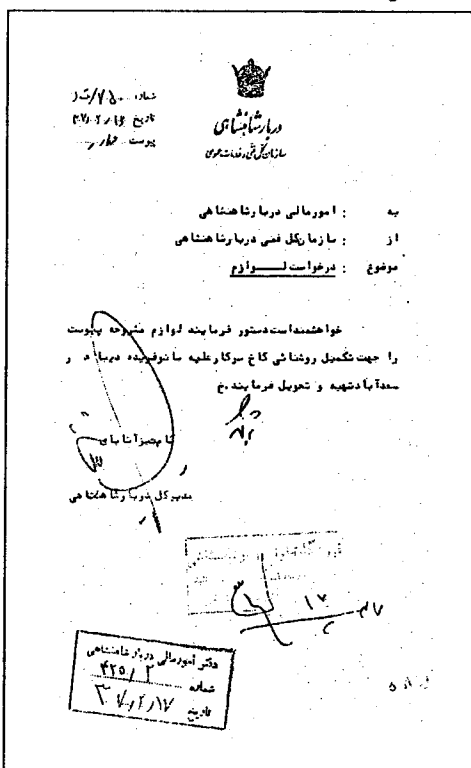 شماره ۷۵۰/
تاریخ
پیوست
دربار شاهنشاهی
سازمان کل فنی و خدمات عمومی
به : امور مالی دربار شاهنشاهی
از : سازمان کل فنی دربار شاهنشاهی
موضوع : درخواست لـــوازم
خواهشمند است دستور فرمایند لوازم مشروحه پیوست
را جهت تکمیل روشنائی کاخ سرکار علیه بانو فریده دیبا در
سعدآباد تهیه و تحویل فرمایند.
کامبیز آتابای
مدیر کل دربار شاهنشاهی
دفتر امور مالی دربار شاهنشاهی
شماره ۴۲۵/۲
تاریخ ۳۷/۲/۱۷